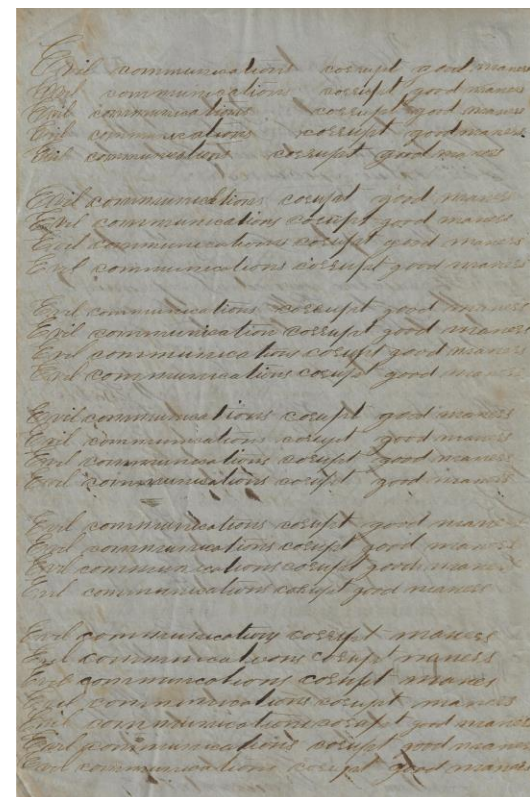 Evil communications corrupt good manne
Evil communications corrupt good maners
Evil communications corrupt good maners
Evil communications corrupt goodmaners
Evil communications corrupt good maners
Evil communications corupt good maners
Evil communications corupt good maners
Evil communications corupt good maners
Evil communications corrupt good maners
Evil communications corrupt good maners
Evil communication corrupt good maners
Evil communications corupt good maners
Evil communications corupt good maners
Evil communications corupt good maners
Evil communications corupt good maners
Evil communications corupt good maners
Evil communications corupt good maners
Evil communications corupt good maners
Evil communications corupt good maners
Evil communications corupt good maners
Evil communications corupt good maners
Evil communications corrupt maners
Evil communications corupt maners
Evil communications corupt maners
Evil communications corupt maners
Evil communications corupt good maners
Evil communications corupt good maners
Evil communications corupt good maners